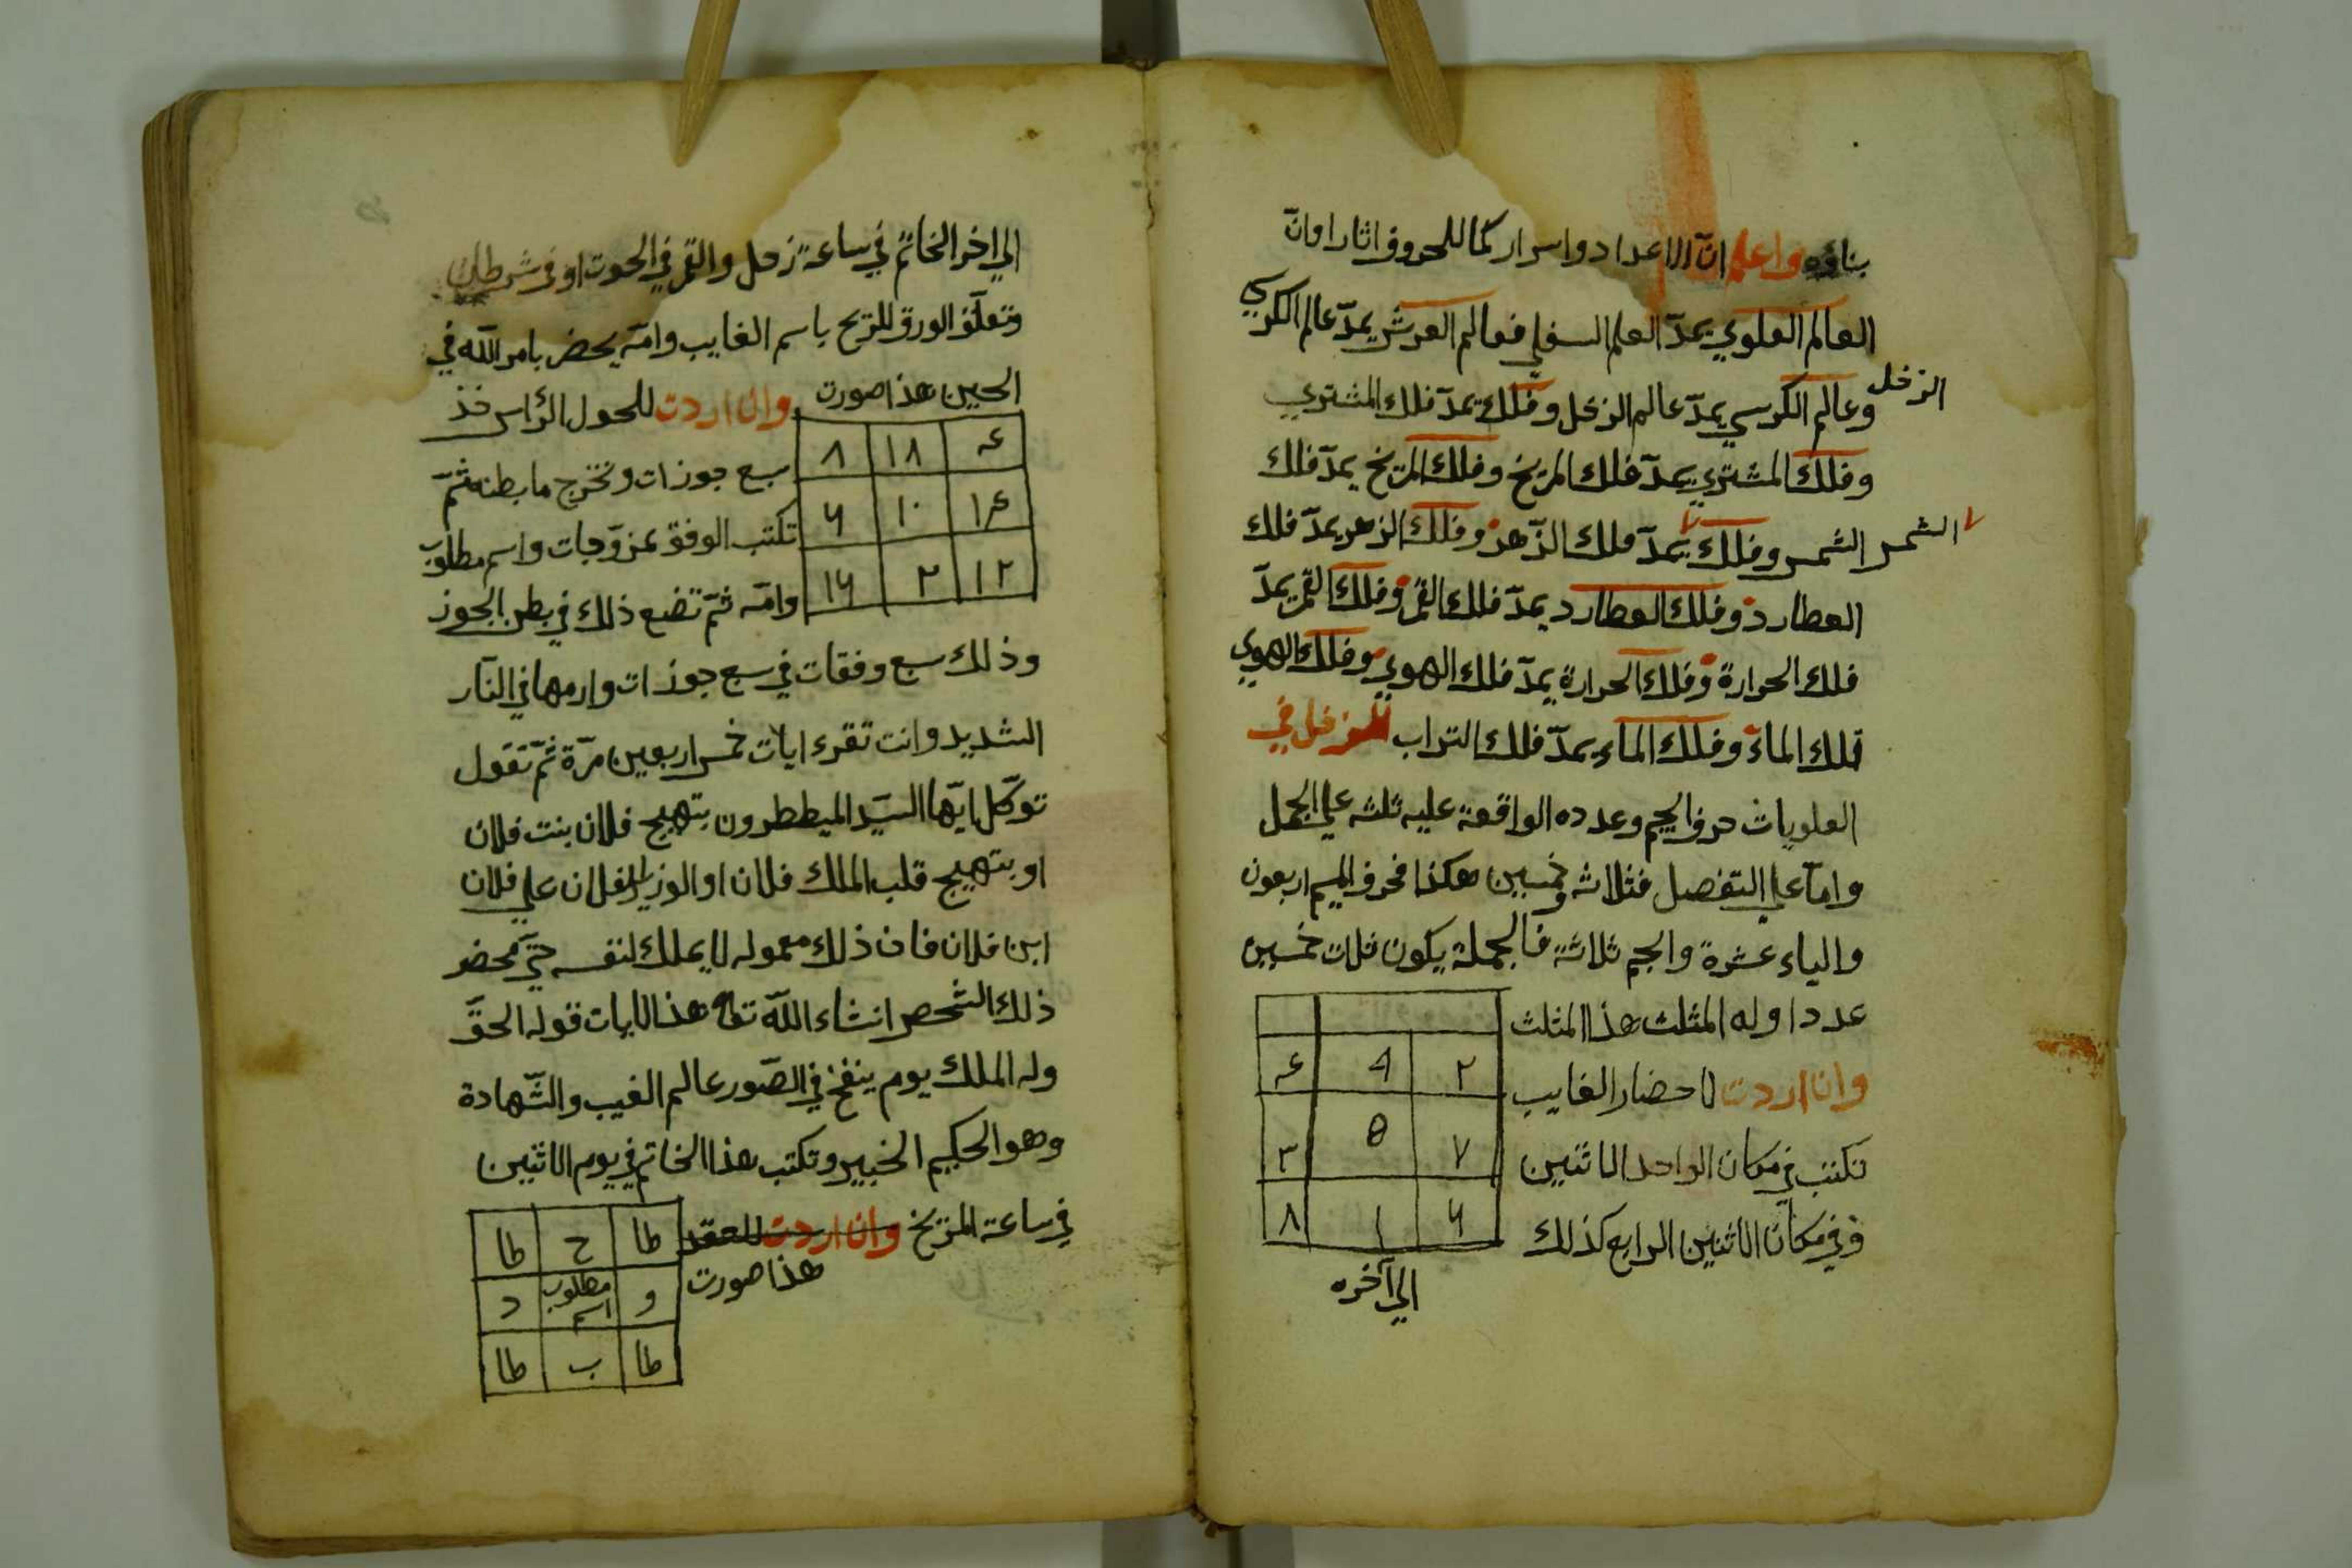 بناؤه واعلم انّ الاعداد واسرار كما للحروف اثارا وانّ
العالم العلوي يمدّ العلم السفلي فعالم العرش يمدّ عالم الكرسي
وعالم الكرسي يمدّ عالم الزخل وفلك يمدّ فلك المشتري
الزخل
وفلك المشتري يمدّ فلك المريخ وفلك المريخ يمدّ فلك
الشمس وفلك يمدّ فلك الزّهرة وفلك الزهر يمدّ فلك
الشمس
العطارد وفلك العطارد يمدّ فلك القمر وفلك القمر يمدّ
فلك الحرارة وفلك الحرارة يمدّ فلك الهوي وفلك الهوي
فلك الماء وفلك الماء يمدّ فلك التراب للزخل في
العلويات حرف الجيم وعدده الواقعة عليه ثلثه علي الجمل
وامّا علي التفصل فثلاثه وخمسين هكذا فحرف الميم اربعون
والياء عشرة والجم ثلاثة فالجملة يكون ثلاث خمسين
عددا وله المثلث هذا المثلث
وان اردت لاحضار الغايب
تكتب في مكان الواحد الاثنين
وفي مكان الاثنين الرابع كذلك
٢ 9 ۴
٧ ٥ ٣
٦ ١ ٨
الي آخره
الي اخر الخاتم في ساعة زحل والقمر في الحوت او في
وتعلّق الورق للريح باسم الغايب وامّه يحضر بامر اللّه في
الحين هذا صورت وان اردت للحول الرّاس خذ
۴ ١٨ ٨
١۴ ١٠ ٦
١٢ ٢ ١٦
سبع جوزات وتخرج ما بطنه ثمّ
تكتب الوفق بمزوّجات واسم مطلوب
وامّه ثمّ تضع ذلك في بطن الجوز
وذلك سبع وفقات في سبع جوزات وارمها في النّار
الشديد وانت تقرء ايات خمس اربعين مرّة ثمّ تقول
توكّل ايّها السيّد الميططرون بتهيج فلان بنت فلان
او بتهييج قلب الملك فلان او الوزير الفلان علي فلان
ابن فلان فان ذلك معموله لا يملك لنفسه حتّي يحضر
ذلك الشّحص انشاء اللّه تعا هذا الايات قوله الحقّ
وله الملك يوم ينفخ في الصّور عالم الغيب والشّهادة
وهو الحكيم الخبير وتكتب هذا الخاتم في يوم الاثنين
في ساعة المريخ وان اردت للعقد
هذا صورت
طا ح طا
و اسم مطلوب د
طا ب طا